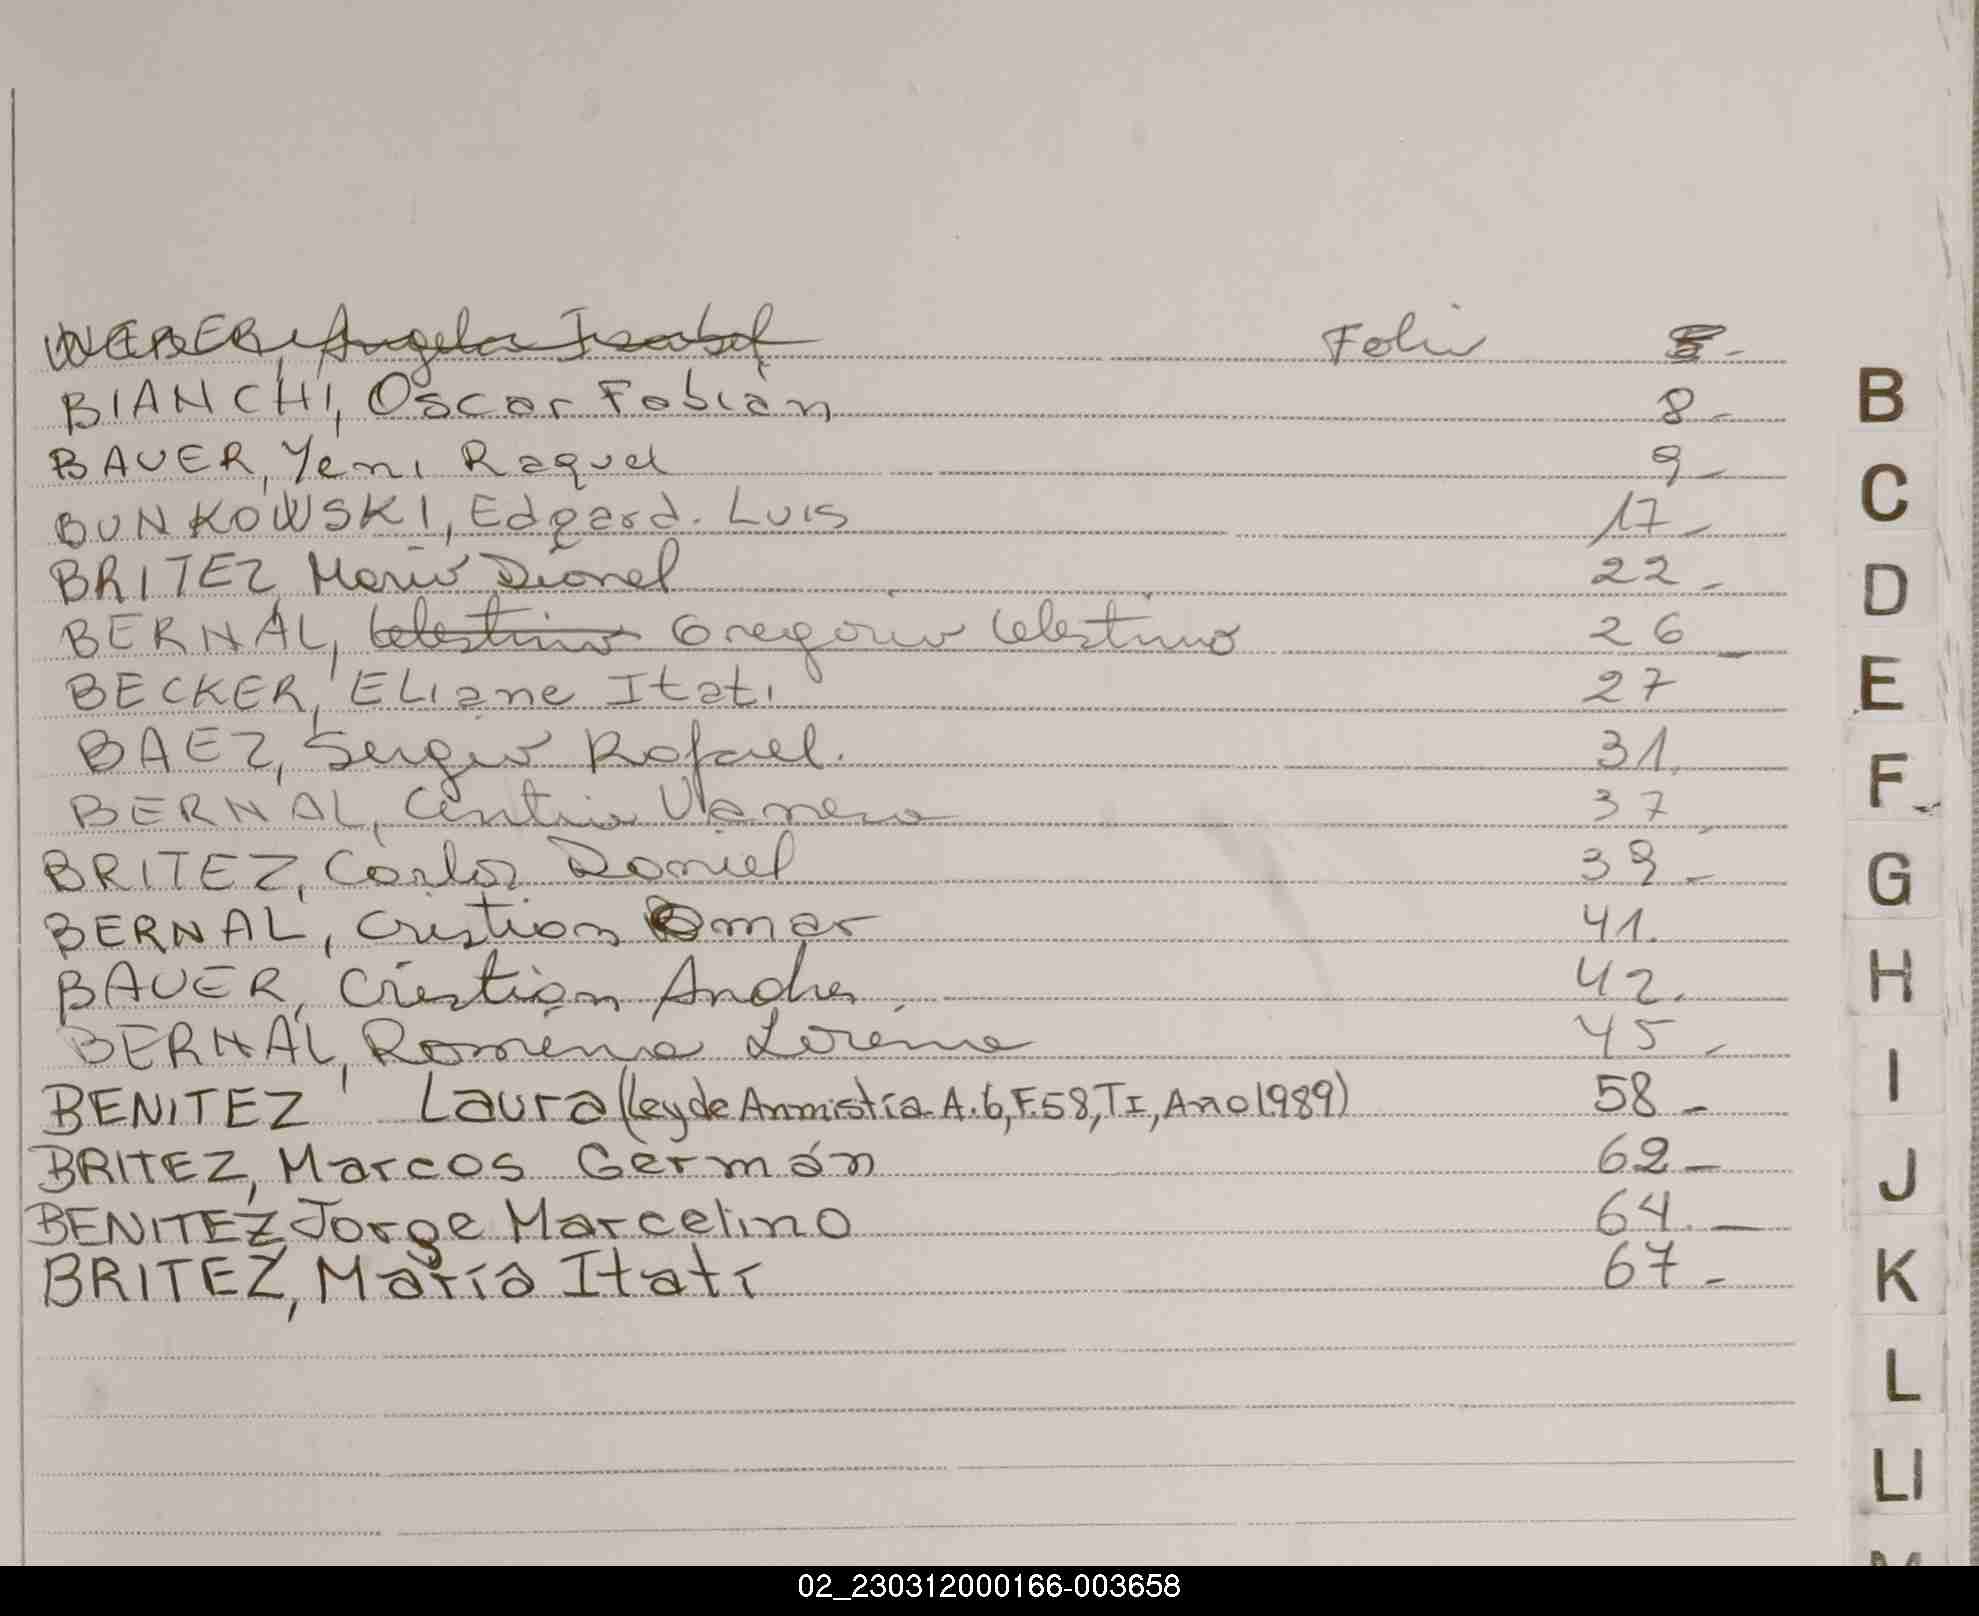 WEBER, Angela Isabel Folio 5.-
BIANCHI, Oscar Fabián 8-
BAUER, Yeni Raquel 9-
BUNKOWSKI, Edgard. Luis 17-
BRITEZ, Mario Dionel 22-
BERNAL, Celestino Gregorio Celestino 26-
BECKER, ELiane Itati 27
BAEZ, Sergio Rafael. 31.
BERNAL, Cintia Vanesa 37-
BRITEZ, Carlos Daniel 39-
BERNAL, Cristian Omar 41.
BAUER, Cristian Andres. 42.
BERNAL, Romina Lorena 45-
BENITEZ, Laura (ley de Anmistía A.6, F.58, TI, Año 1989) 58-
BRITEZ, Marcos Germán 62-
BENITEZ Jorge Marcelino 64.-
BRITEZ, María Itatí 67-
B
C
D
E
F
G
H
I
J
K
L
Ll
02_230312000166-003658